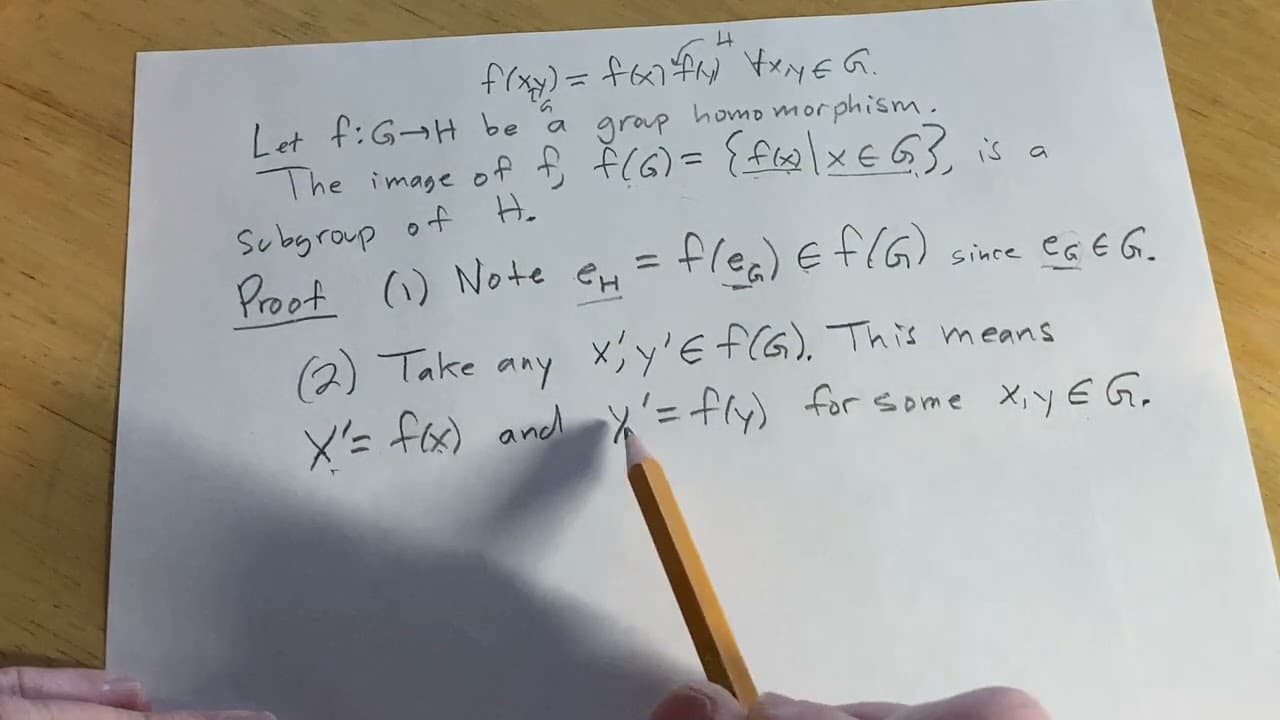 f(xy) = f(x) f(y) ∀x,y ∈ G.
G
H
Let f: G→H be a group homomorphism.
The image of f, f(G) = {f(x) | x ∈ G}, is a
subgroup of H.
Proof (1) Note e_H = f(e_G) ∈ f(G) since e_G ∈ G.
(2) Take any x', y' ∈ f(G). This means
x' = f(x) and y' = f(y) for some x, y ∈ G.